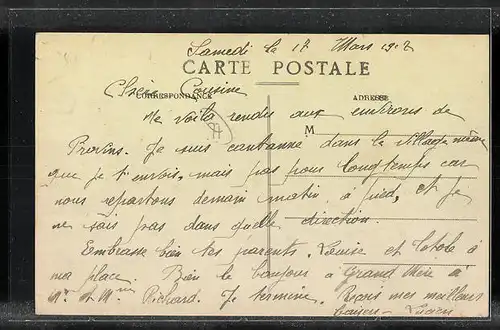 Samedi le 17 Mars 191
CARTE POSTALE
Chère Cousine
CORRESPONDANCE
ADRESSE
Me voila rendu aux environs de
M
Provins. Je suis cantonné dans le village même
que je t'envois, mais pas pour longtemps car
nous repartons demain matin à pied, et je
ne sais pas dans quelle direction.
Embrasse bien tes parents. Louise et Totole à
ma place. Bien le bonjour à Grand Mère à
Mr et Mme Richard. Je termine. Reçois mes meilleurs
baisers Lucien